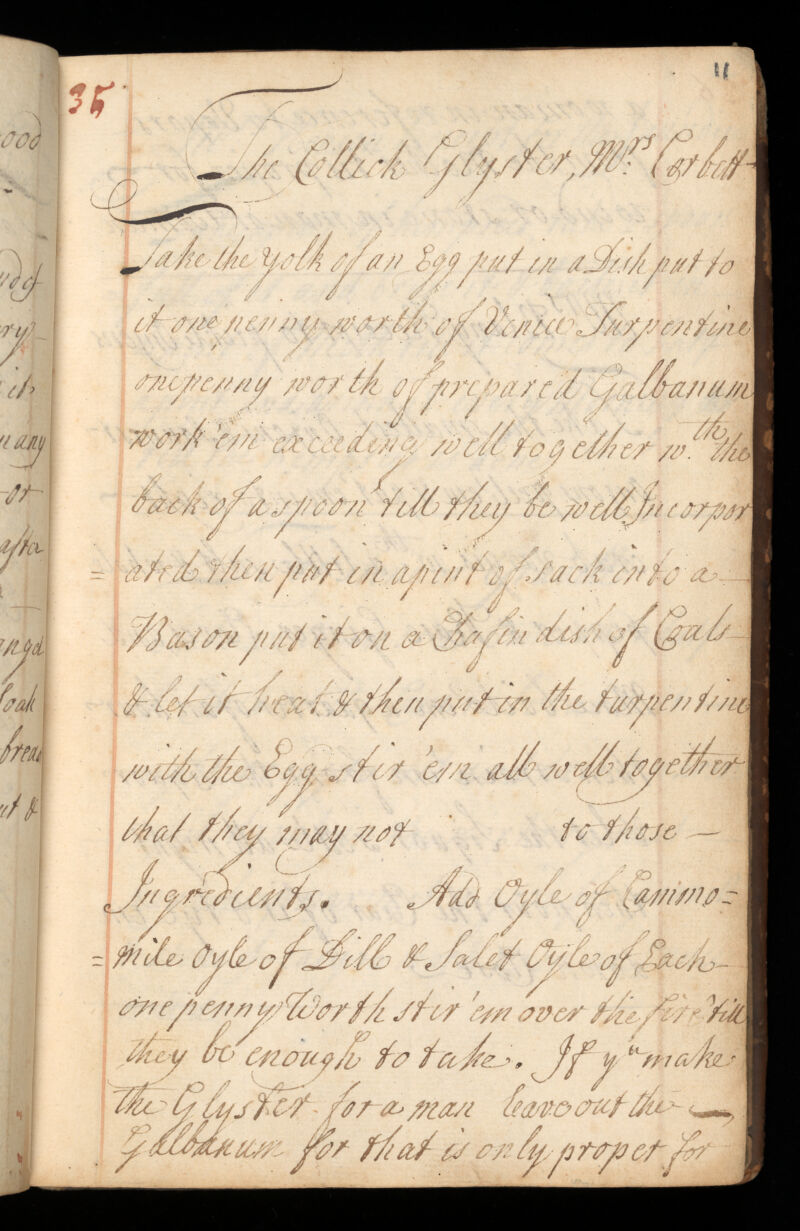 35
11
The Collick Glyster, Mrs Corbett
Take the yolk of an Egg put in a Dish put to
it one penny worth of Venice Turpentine
one penny worth of prepared Galbanum
work 'em exceeding well together wth the
back of a spoon 'till they be well Incorpor
= ated then put in a pint of sack into a
Bason put it on a Chafin dish of Coals
& let it heat & then put in the turpentine
with the Egg stir 'em all well together
that they may not to those —
Ingredients. Add Oyle of Cammo=
= mile Oyle of Dill & Salet Oyle of Each
one penny Worth stir 'em over the fire 'till
they be enough to take. If yu make
the Glyster for a man leave out the —
Galbanum for that is only proper for
ood
ry
it
n any
or
angd
loak
bread